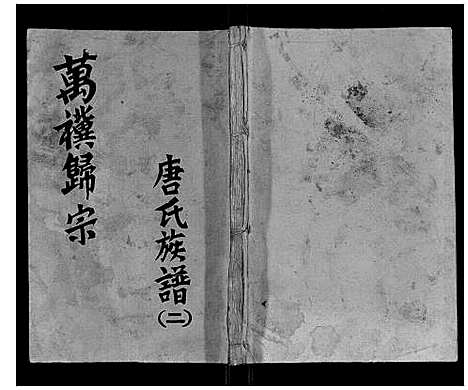 唐氏族譜(二)
萬禩歸宗